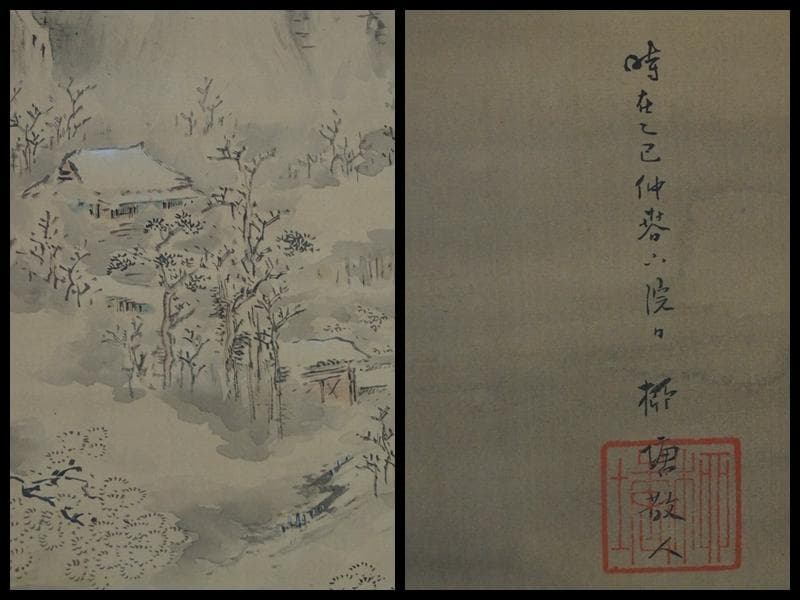 時在乙巳仲春下浣日 柳塘散人